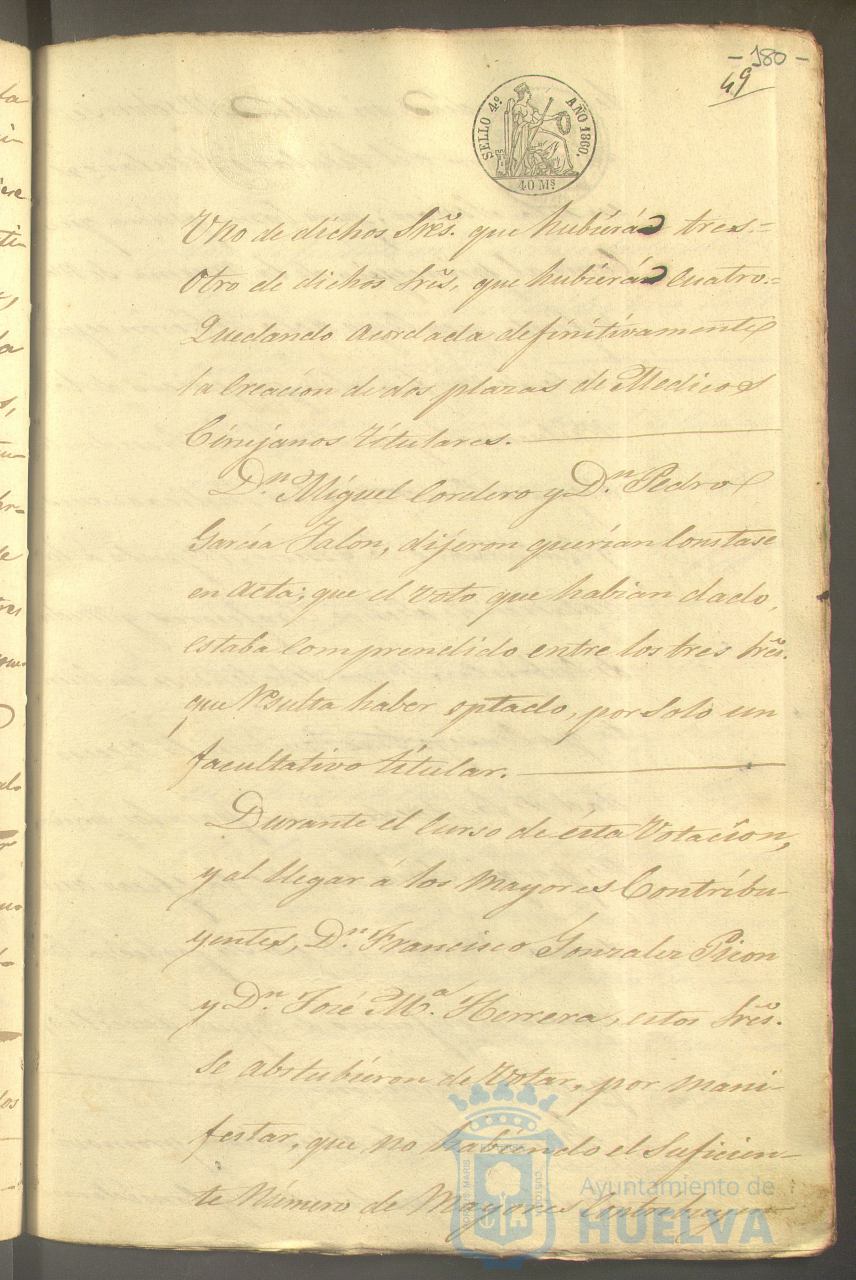 - 180 -
49
SELLO 4º AÑO 1860.
40 Ms
Uno de dichos Sres. que hubiera tres.=
Otro de dichos Sres. que hubiera Cuatro.=
Quedando acordada definitivamente
la Creacion de dos plazas de Medicos
Cirujanos titulares.
Dn. Miguel Cordero y Dn. Pedro
Garcia Jalon, dijeron querian Constase
en acta, que el voto que habian dado,
estaba Comprendido entre los tres Sres.
que resulta haber optado, por solo un
facultativo titular.
Durante el Curso de esta Votacion,
y al llegar á los mayores Contribu-
yentes, Dn. Francisco Gonzalez
y Dn. José Ma. Herrera, estos Sres.
se abstubieron de votar, por mani-
festar, que no habiendo el suficien-
te Número de Mayores
PORTUS MARIS CUSTODIA
Ayuntamiento de
HUELVA